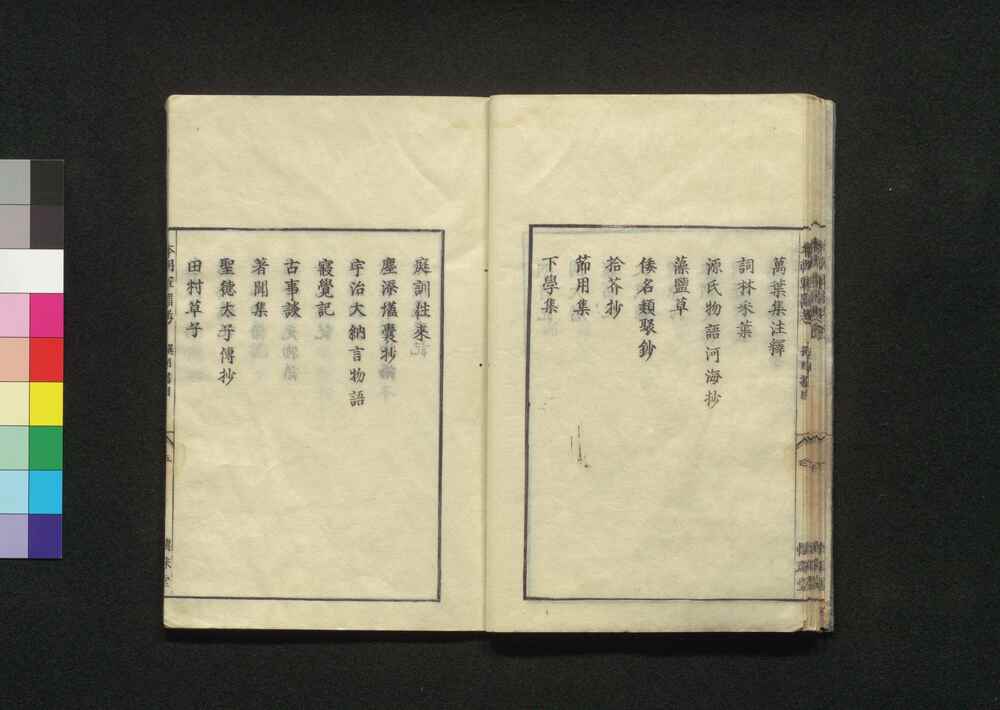 萬葉集注釋
詞林采葉
源氏物語河海抄
藻鹽草
倭名類聚鈔
拾芥抄
節用集
下學集
庭訓往來
塵添壒囊抄
宇治大納言物語
寢覺記
古事談
著聞集
聖德太子傳抄
田村草子